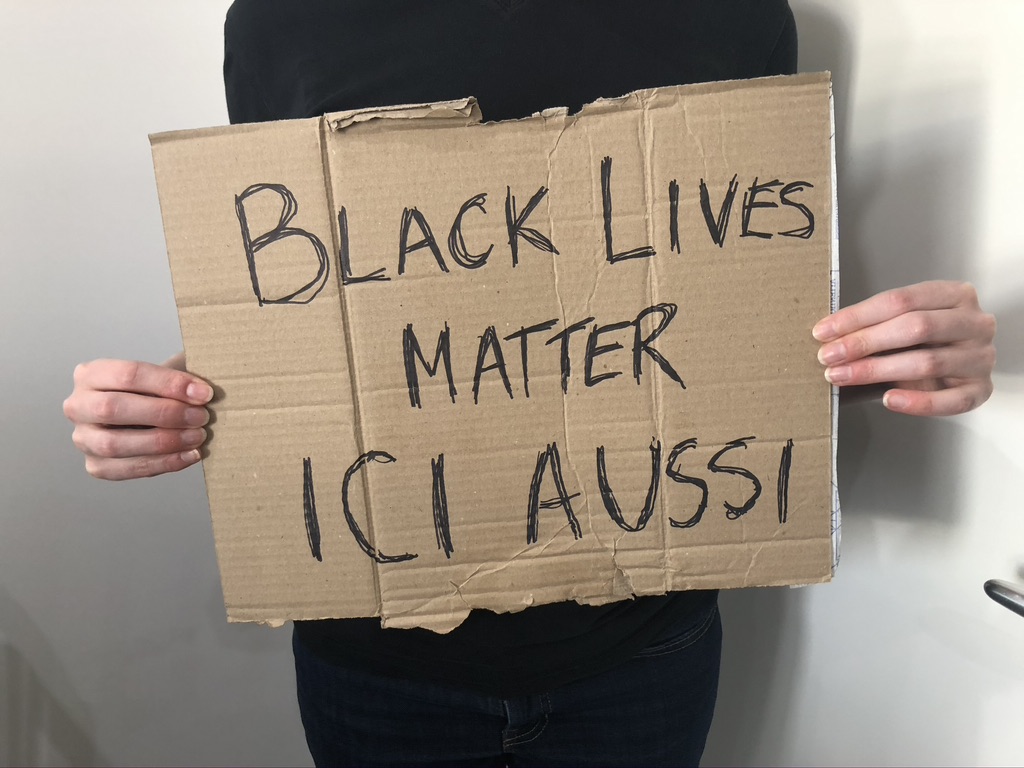 BLACK LIVES
MATTER
ICI AUSSI